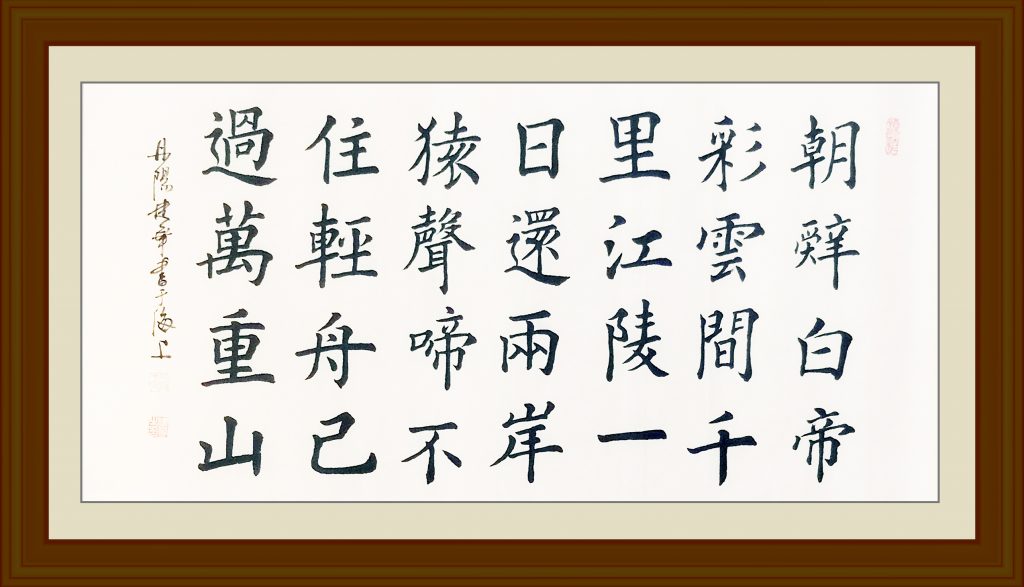 朝辭白帝
彩雲間千
里江陵一
日還兩岸
猿聲啼不
住輕舟已
過萬重山
丹陽

書于海上